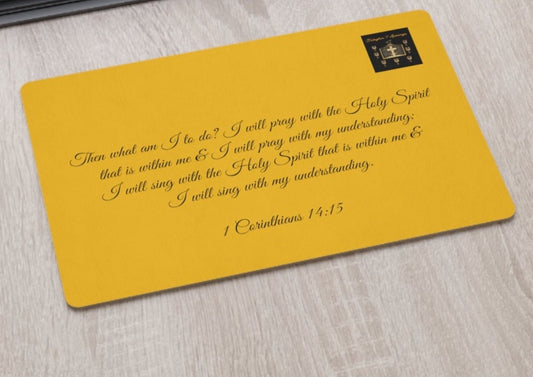 Then what am I to do? I will pray with the Holy Spirit
that is within me & I will pray with my understanding;
I will sing with the Holy Spirit that is within me &
I will sing with my understanding.
1 Corinthians 14:15